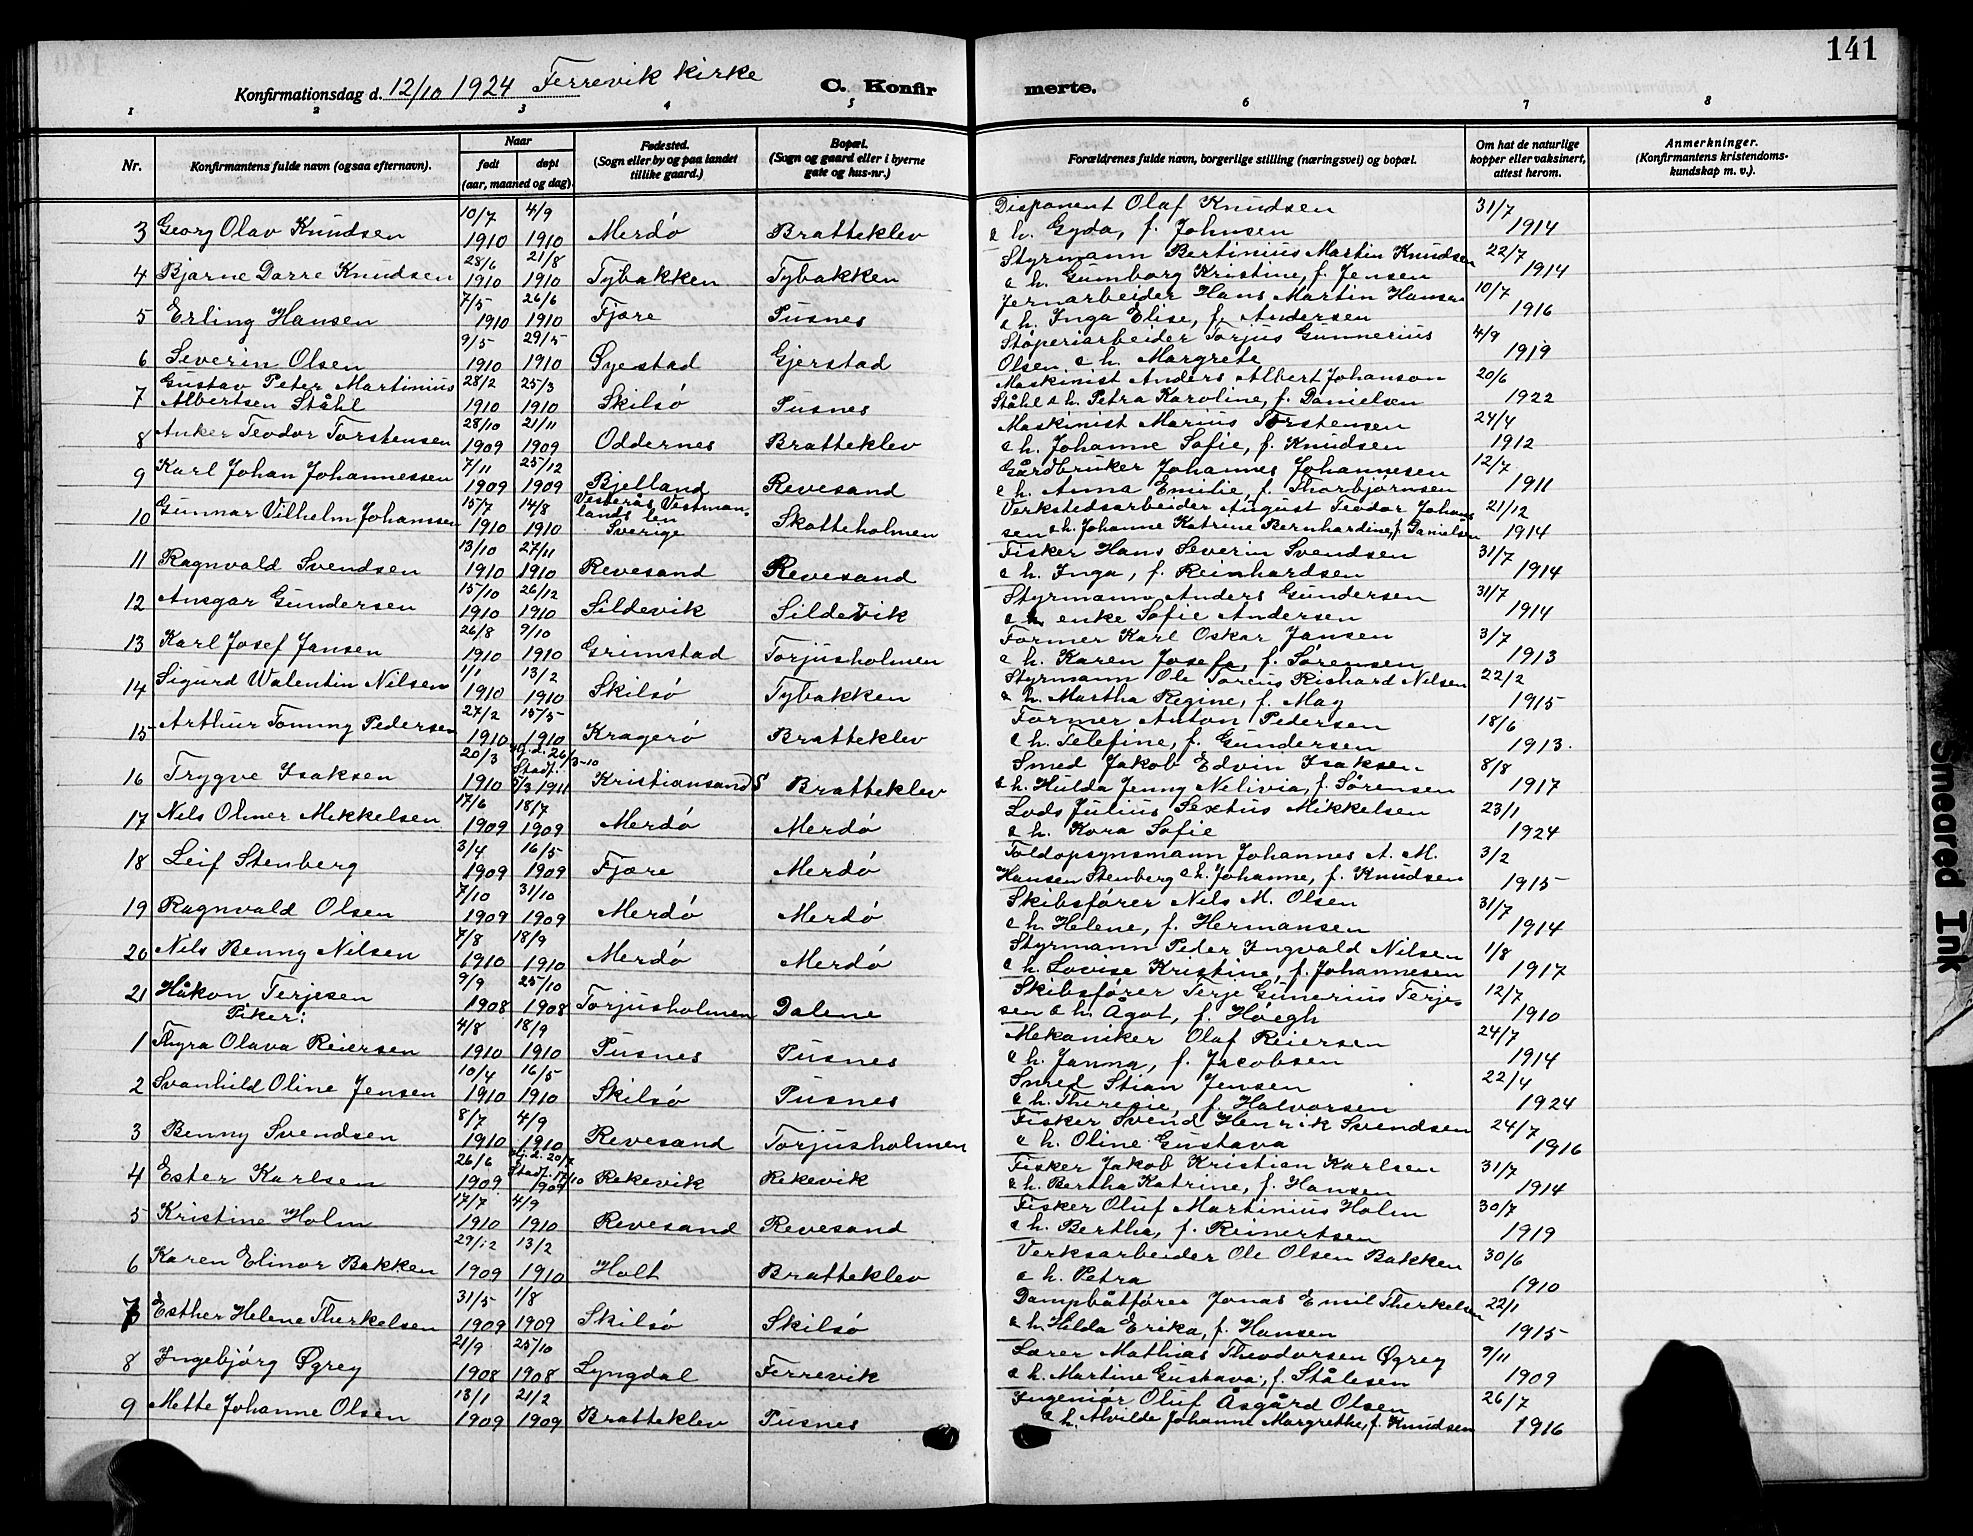 141
Konfirmationsdag d. 12/10 1924 Ferrevik kirke C. Konfirmerte.
1 2 3 4 5 6 7 8
Nr. Konfirmantens fulde navn (ogsaa efternavn). Naar født døpt (aar, maaned og dag). Fødested. (Sogn eller by og paa landet tillike gaard.) Bopæl. (Sogn og gaard eller i byerne gate og hus-nr.) Forældrenes fulde navn, borgerlige stilling (næringsvei) og bopæl. Om hat de naturlige kopper eller vaksinert, attest herom. Anmerkninger. (Konfirmantens kristendomskundskap m. v.).
3 Georg Olav Knudsen 10/7 1910 4/9 1910 Merdø Bratteklev Disponent Olaf Knudsen & h. Gyda, f. Johnsen 31/7 1914
4 Bjarne Dorre Knudsen 28/6 1910 21/8 1910 Tybakken Tybakken Styrmann Bertinius Martin Knudsen & h. Gunborg Kristine, f. Jensen 22/7 1914
5 Erling Hansen 7/5 1910 26/6 1910 Fjære Pusnes Jernarbeider Hans Martin Hansen & h. Inga Elise, f. Andersen 10/7 1916
6 Severin Olsen 9/5 1910 29/5 1910 Øyestad Gjerstad Støperiarbeider Torjus Gunnerius Olsen & h. Margrete 4/9 1919
7 Gustav Peter Martinius Albertsen Ståhl 28/2 1910 25/3 1910 Skilsø Pusnes Maskinist Anders Albert Johanson Ståhl & h. Petra Karoline, f. Danielsen 20/6 1922
8 Anker Teodor Torstensen 28/10 1909 21/11 1909 Oddernes Bratteklev Maskinist Marius Torstensen & h. Johanne Sofie, f. Knudsen 24/4 1912
9 Karl Johan Johannessen 7/11 1909 25/12 1909 Bjelland Revesand Gårdbruker Johannes Johannesen & h. Anna Emilie, f. Thorbjørnsen 12/7 1911
10 Gunnar Vilhelm Johanssen 15/7 1910 14/8 1910 Vesterås Vestmanlands len Sverige Skotteholmen Verkstedsarbeider August Teodor Johanssen & h. Johanne Katrine Bernhardine, f. Danielsen 21/12 1914
11 Ragnvald Svendsen 13/10 1910 27/11 1910 Revesand Revesand Fisker Hans Severin Svendsen & h. Inga, f. Reinhardsen 31/7 1914
12 Ansgar Gundersen 15/10 1910 26/12 1910 Sildevik Sildevik Styrmann Anders Gundersen & h. enke Sofie Andersen 31/7 1914
13 Karl Josef Jansen 26/8 1910 9/10 1910 Grimstad Torjusholmen Former Karl Oskar Jansen & h. Karen Josefa, f. Sørensen 3/7 1913
14 Sigurd Walentin Nilsen 1/1 1910 13/2 1910 Skilsø Tybakken Styrmann Ole Toreus Richard Nilsen & h. Martha Regine, f. May 22/2 1915
15 Arthur Tommy Pedersen 27/2 1910 15/5 1910 Kragerø Bratteklev Former Anton Pedersen & h. Telefine, f. Gundersen 18/6 1913.
16 Trygve Isaksen 20/3 1910 Hj. d. 26/3-10 Stadf. 5/3 1911 Kristiansand S Bratteklev Smed Jakob Edvin Isaksen & h. Hulda Jenny Nelivia, f. Sørensen 8/8 1917
17 Nils Olmer Mikkelsen 17/6 1909 18/7 1909 Merdø Merdø Lods Julius Sextus Mikkelsen & h. Kora Sofie 23/1 1924
18 Leif Stenberg 3/4 1909 16/5 1909 Fjære Merdø Toldopsynsmann Johannes A. M. Hansen Stenberg & h. Johanne, f. Knudsen 3/2 1915
19 Ragnvald Olsen 7/10 1909 31/10 1909 Merdø Merdø Skibsfører Nils M. Olsen & h. Helene, f. Hermansen 31/7 1914
20 Nils Benny Nilsen 7/8 1910 18/9 1910 Merdø Merdø Styrmann Peder Ingvald Nilsen & h. Lovise Kristine, f. Johannesen 1/8 1917
21 Håkon Terjesen 9/9 1908 25/10 1908 Torjusholmen Dalene Skibsfører Terje Gunerius Terjesen & h. Ågot, f. Høegh 12/7 1910
Piker:
1 Thyra Olava Reiersen 4/8 1910 18/9 1910 Pusnes Pusnes Mekaniker Olaf Reiersen & h. Janna, f. Jacobsen 24/7 1914
2 Svanhild Oline Jensen 10/4 1910 16/5 1910 Skilsø Pusnes Smed Stian Jensen & h. Theresie, f. Halvorsen 22/4 1924
3 Benny Svendsen 8/7 1910 4/9 1910 Revesand Torjusholmen Fisker Svend Henrik Svendsen & h. Oline Gustava 24/7 1916
4 Ester Karlsen 26/6 1909 Hj. d. 20/7 Stadf. 17/10 1909 Rekevik Rekevik Fisker Jakob Kristian Karlsen & h. Bertha Katrine, f. Hansen 31/7 1914
5 Kristine Holm 17/7 1910 4/9 1910 Revesand Revesand Fisker Oluf Martinius Holm & h. Bertha, f. Reinertsen 30/7 1919
6 Karen Elinor Bakken 29/12 1909 13/2 1910 Holt Bratteklev Verksarbeider Ole Olsen Bakken & h. Petra 30/6 1910
7 Esther Helene Therkelsen 31/5 1909 1/8 1909 Skilsø Skilsø Dampbåtfører Jonas Emil Therkelsen & h. Hilda Erika, f. Hansen 22/1 1915
8 Ingebjørg Øgrey 21/9 1908 25/10 1908 Lyngdal Ferrevik Lærer Mathias Theodorsen Øgrey & h. Martine Gustava, f. Stålesen 9/11 1909
9 Mette Johanne Olsen 13/1 1909 21/2 1909 Bratteklev Pusnes Ingeniør Oluf Åsgård Olsen & h. Alvilde Johanne Margrethe, f. Knudsen 26/7 1916
Smeared Ink